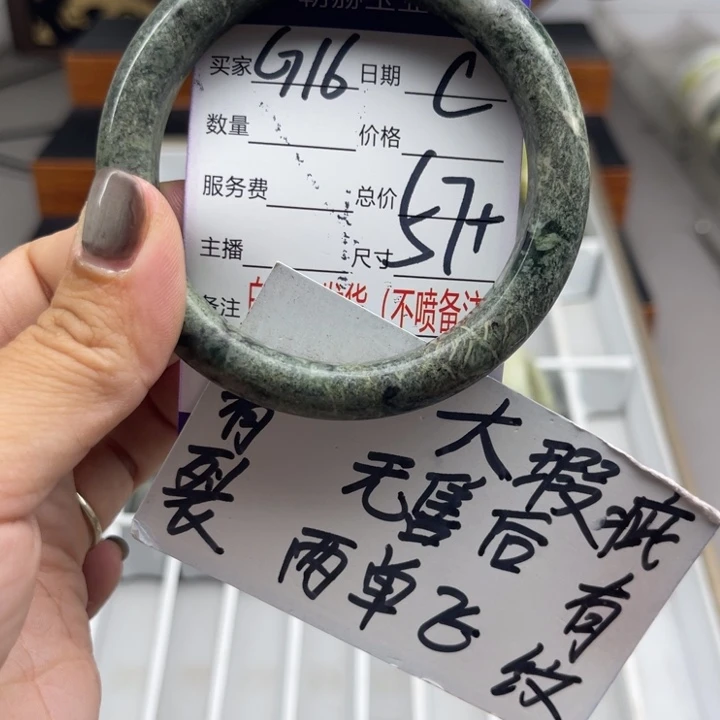 买家 G116 日期 C
数量 价格
服务费 总价
主播 尺寸 57+
备注 货(不喷备注
有裂
大瑕疵
无售后
两单飞
有纹